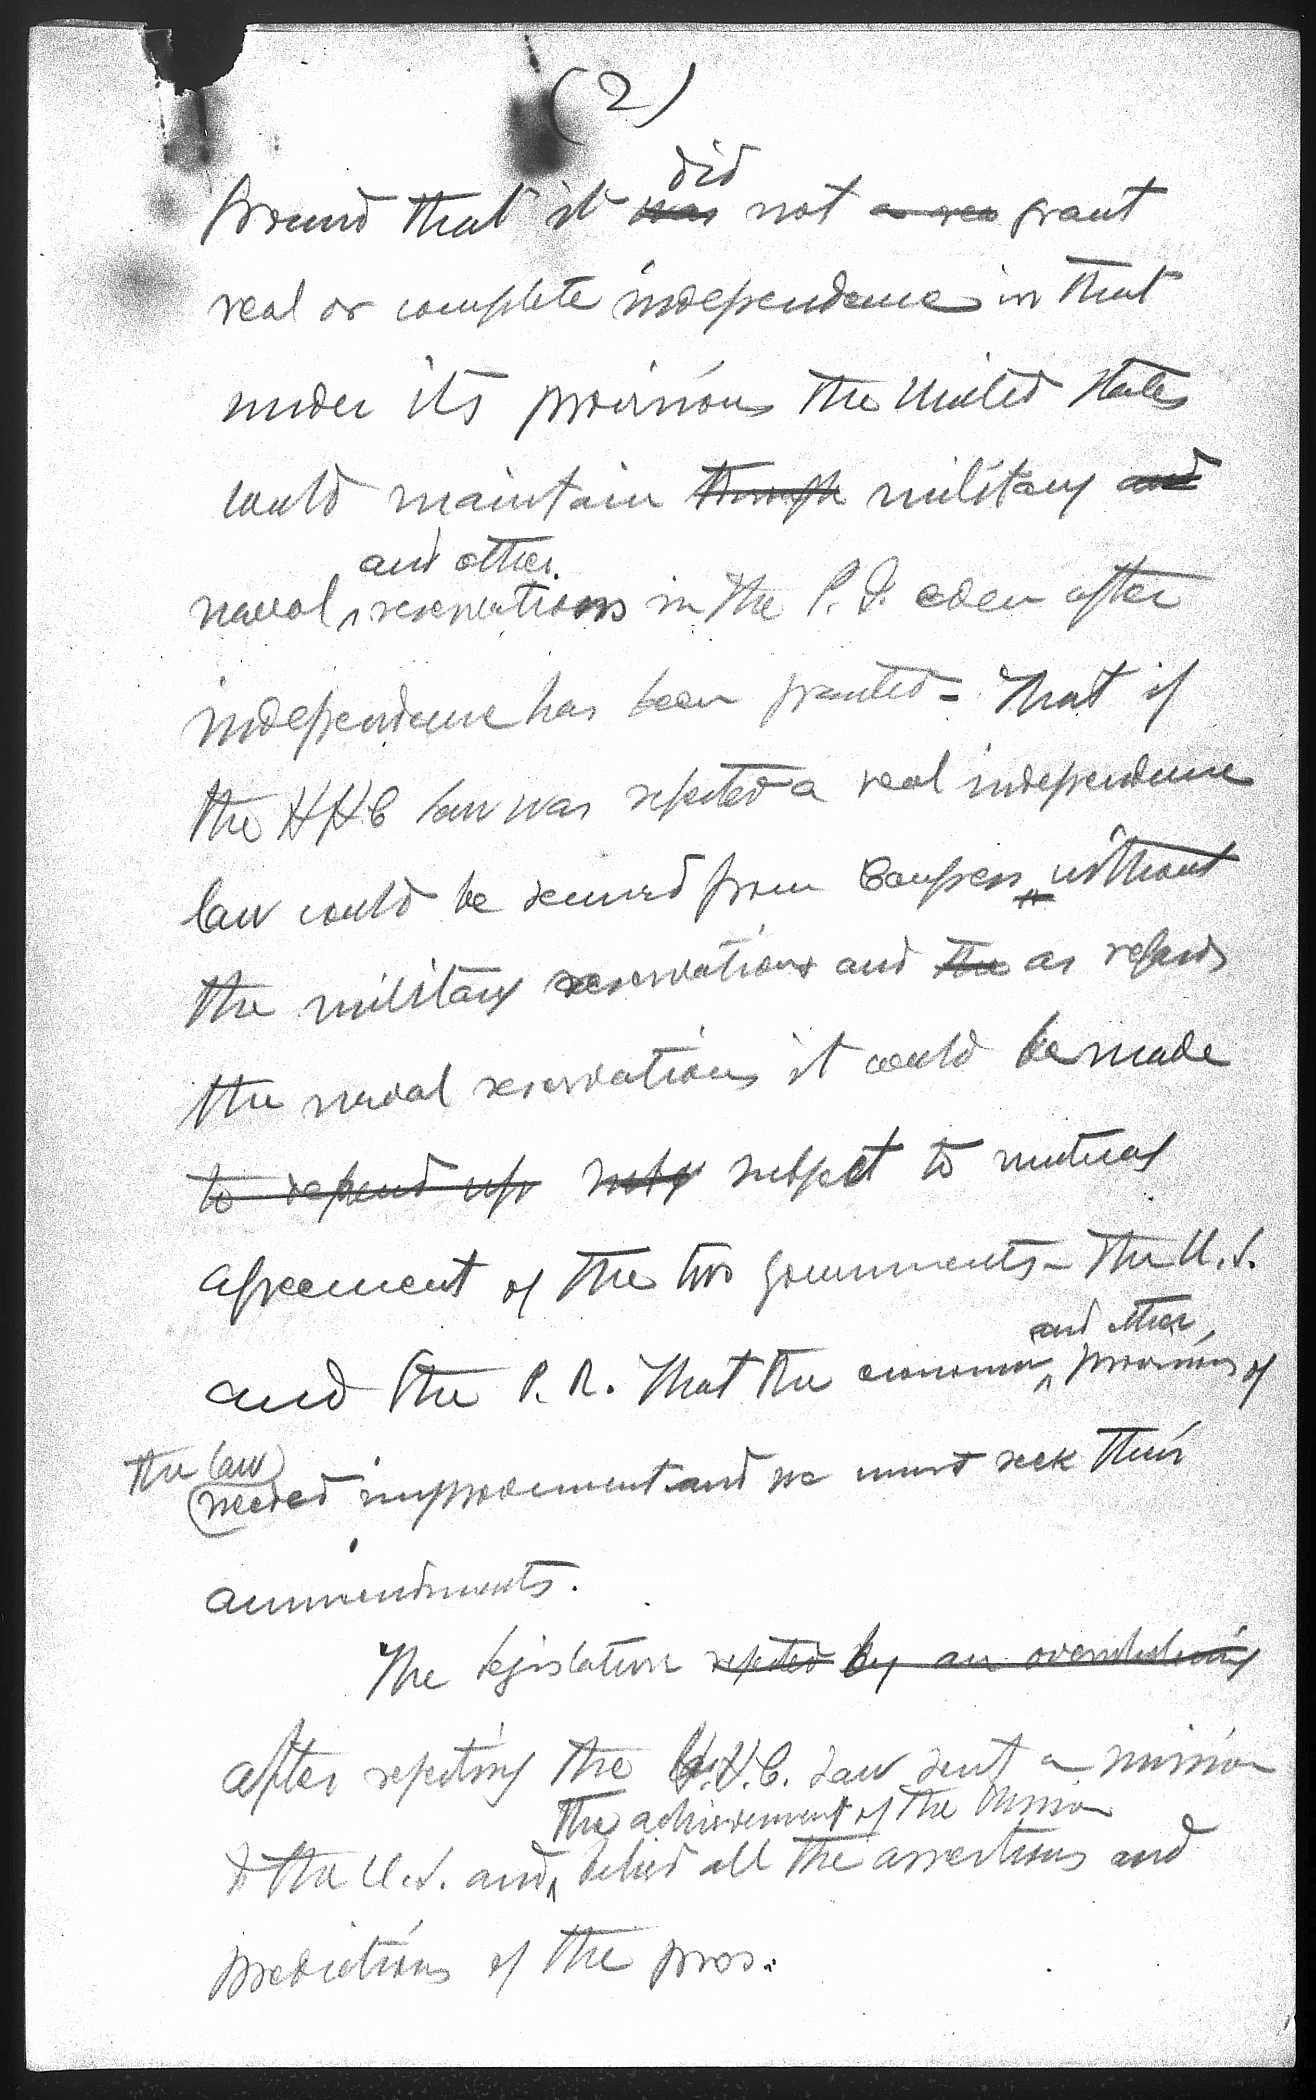 (2)
did
ground that it was not a rea grant
real or complete independence in that
under its provisions the United States
could maintain through military and
and other
naval reservations in the P. I. even after
independence has been granted - That if
the HHC law was rejected a real independence
law could be secured from Congress without
the military reservations and the as regards
the naval reservations it would be made
to depend upo subj subject to mutual
agreement of the two governments - The U.S.
and other
and the P. R. That the economic provisions of
the law
needed improvement and we must seek their
ammendments.
The legislature rejected by an overwhelming
after rejecting the H.H.C. Law sent a mission
the achievement of the Mission
to the U.S. and belied all the assertions and
predictions of the pros.